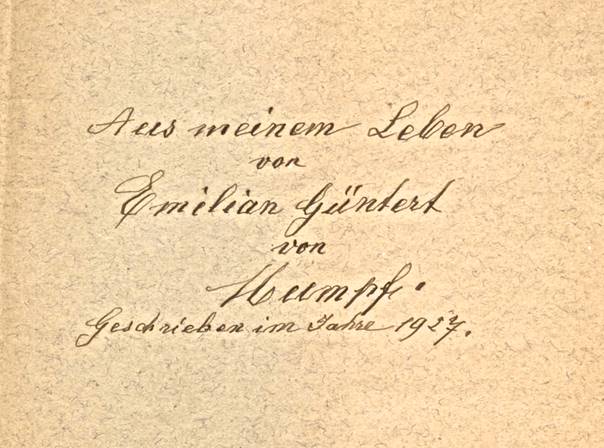 Aus meinem Leben
von
Emilian Güntert
von
Mumpf.
Geschrieben im Jahre 1927.